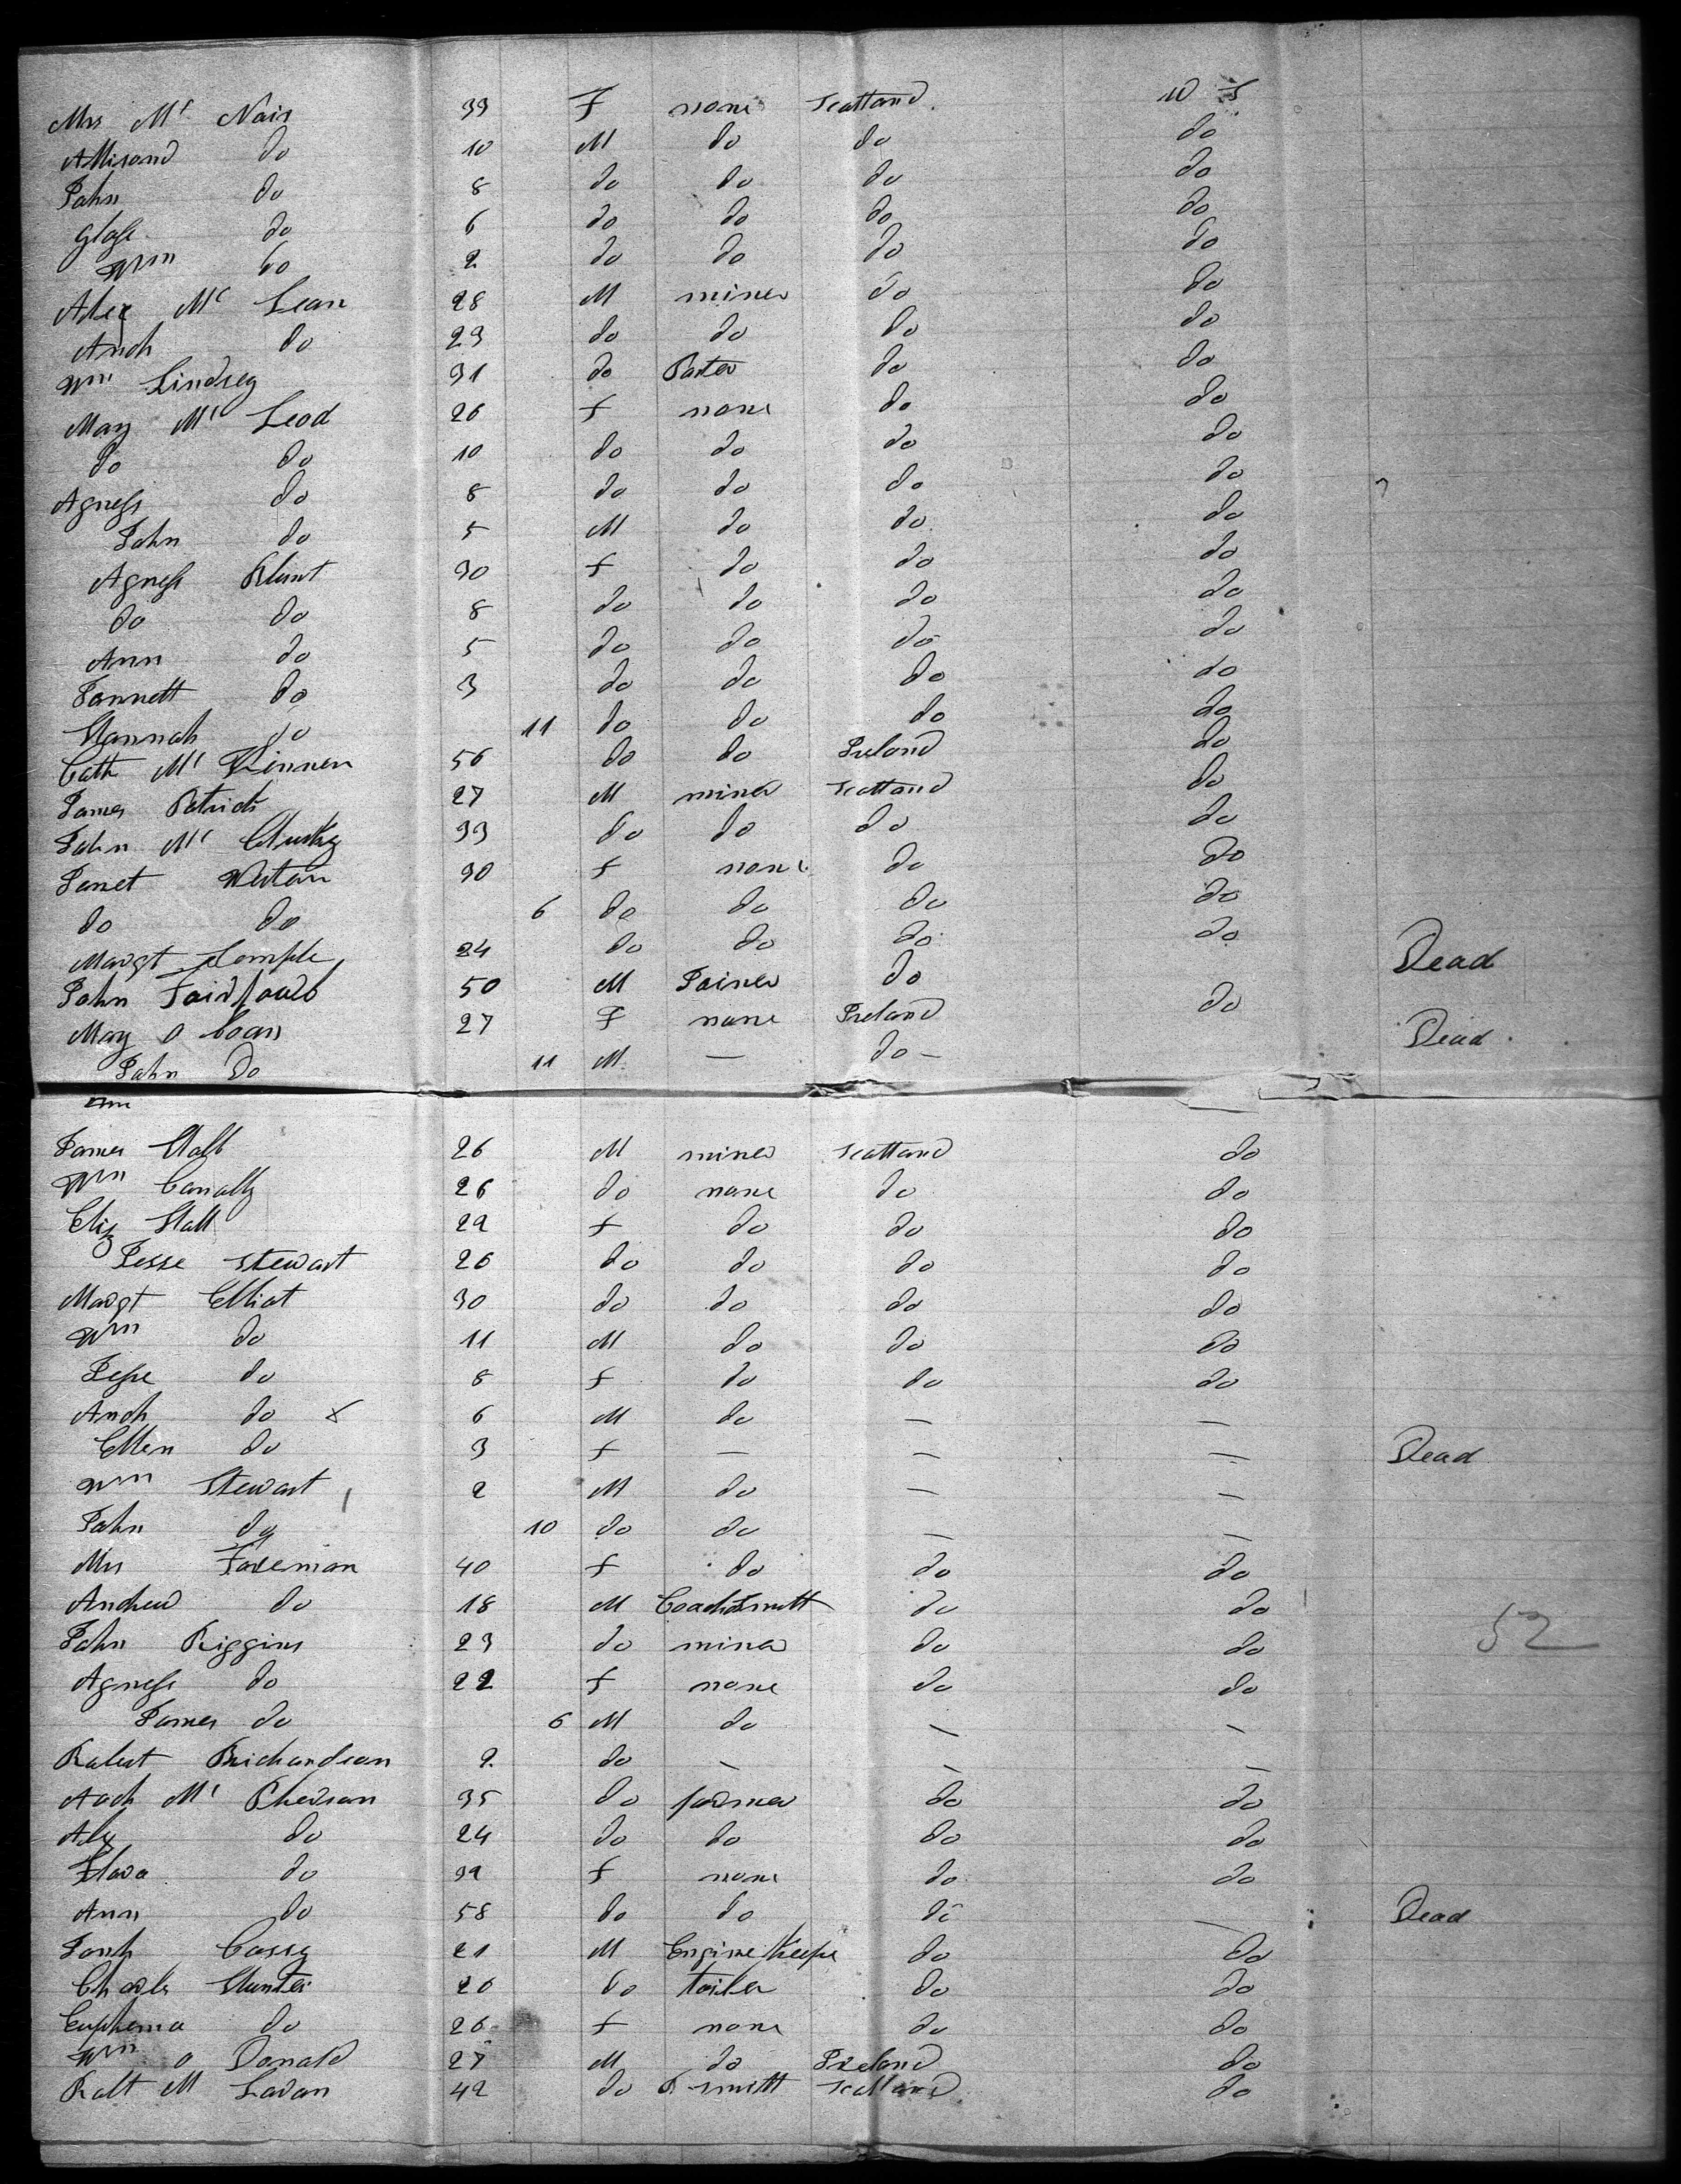 Mrs Mc Nair 33 F none Scotland U S
Allisand do 10 M do do do
John do 8 do do do do
do 6 do do do do
Wm do 2 do do do do
Alex Mc Lean 28 M miner do do
Arch do 23 do do do do
Wm Lindsey 31 do do do
Mary Mc Leod 26 F none do do
do do 10 do do do do
Agness do 8 do do do do
John do 5 M do do do
Agness 30 F do do do
do do 8 do do do do
Ann do 5 do do do do
Jannett do 3 do do do do
Hannah do 11 do do do do
Cath Mc Kinnen 56 do do Ireland do
James Patrick 27 M miner Scotland do
John Mc Clusky 33 do do do do
Janet Weston 30 F none do do
do do 6 do do do do
Margt Semple 24 do do do do
John Fairfowlb 50 M Joiner do Dead
Mary o 27 F none Ireland do
John Do 11 M — do — Dead
James Hall 26 M miner Scotland do
Wm Conally 26 do none do do
Eliz Hall 22 F do do do
Jesse Stewart 26 do do do do
Margt Elliot 30 do do do do
Wm do 11 M do do do
Jesse do 8 F do do do
Arch do x 6 M do — —
Ellen do 3 F — — — Dead
Wm Stewart 2 M do — —
John do 10 do do — —
Mrs Foreman 40 F do do do
Andrew do 18 M Coachsmith do do
John Riggins 23 do miner do do 52
Agness do 22 F none do do
James do 6 M do — —
Robert Richardson 2 do — — —
Arch Mc Pherson 35 do farmer do do
Alex do 24 do do do do
Flora do 32 F none do do
Ann do 58 do do do — Dead
Casey 21 M Engine Keeper do do
Charles Hunter 20 do tailer do do
Euphema do 26 F none do do
Wm o Donald 27 M do Ireland do
Robt M 42 do smith Scotland do